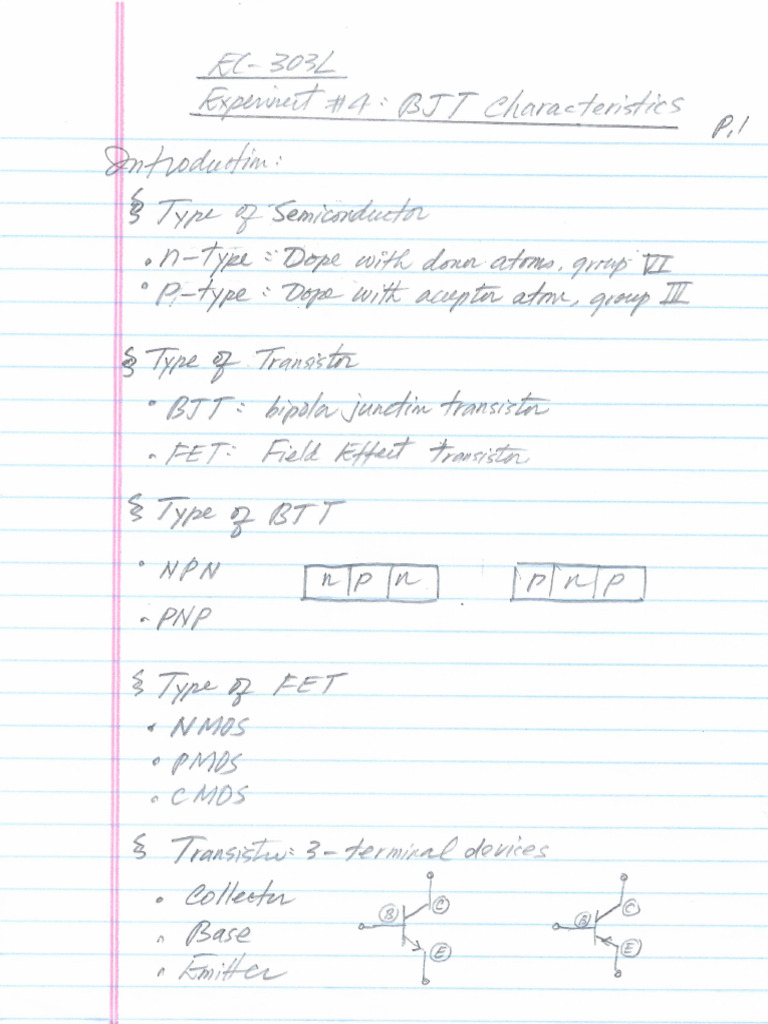 EC-303L
Experiment #4: BJT Characteristics
P.1
Introduction:
§ Type of Semiconductor
• n-type: Dope with donor atoms, group VI
• P-type: Dope with acceptor atom, group III
§ Type of Transistor
• BJT: bipolar junction transistor
• FET: Field Effect transistor
§ Type of BJT
• NPN
n p n
p n p
• PNP
§ Type of FET
• NMOS
• PMOS
• CMOS
§ Transistor: 3-terminal devices
• Collector
• Base
• Emitter
B C E
B C E